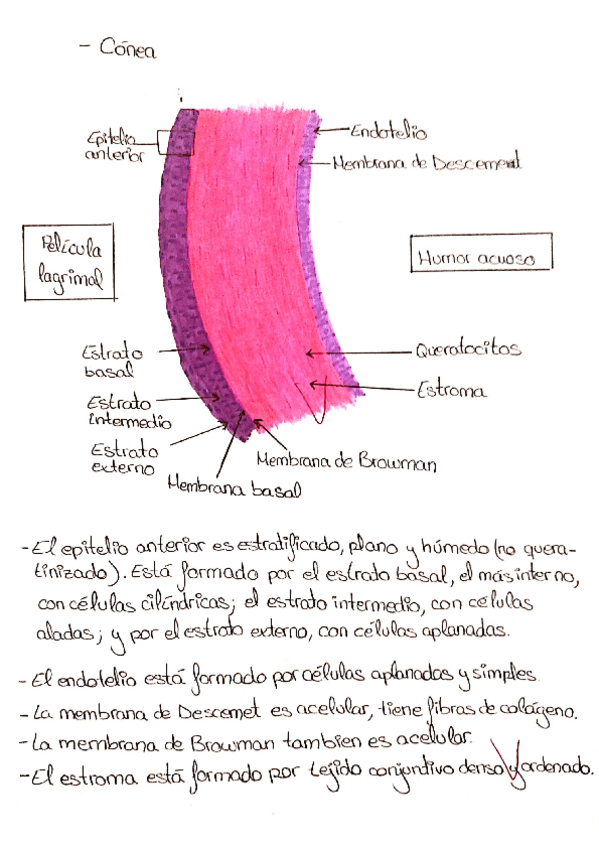 - Córnea
Epitelio
anterior
Endotelio
Membrana de Descemet
Película
lagrimal
Humor acuoso
Estrato
basal
Queratocitos
Estrato
intermedio
Estroma
Estrato
externo
Membrana de Browman
Membrana basal
- El epitelio anterior es estratificado, plano y húmedo (no quera-
tinizado). Está formado por el estrato basal, el más interno,
con células cilíndricas; el estrato intermedio, con células
aladas; y por el estrato externo, con células aplanadas.
- El endotelio está formado por células aplanadas y simples.
- La membrana de Descemet es acelular, tiene fibras de colágeno.
- La membrana de Browman tambien es acelular.
- El estroma está formado por tejido conjuntivo denso y ordenado.